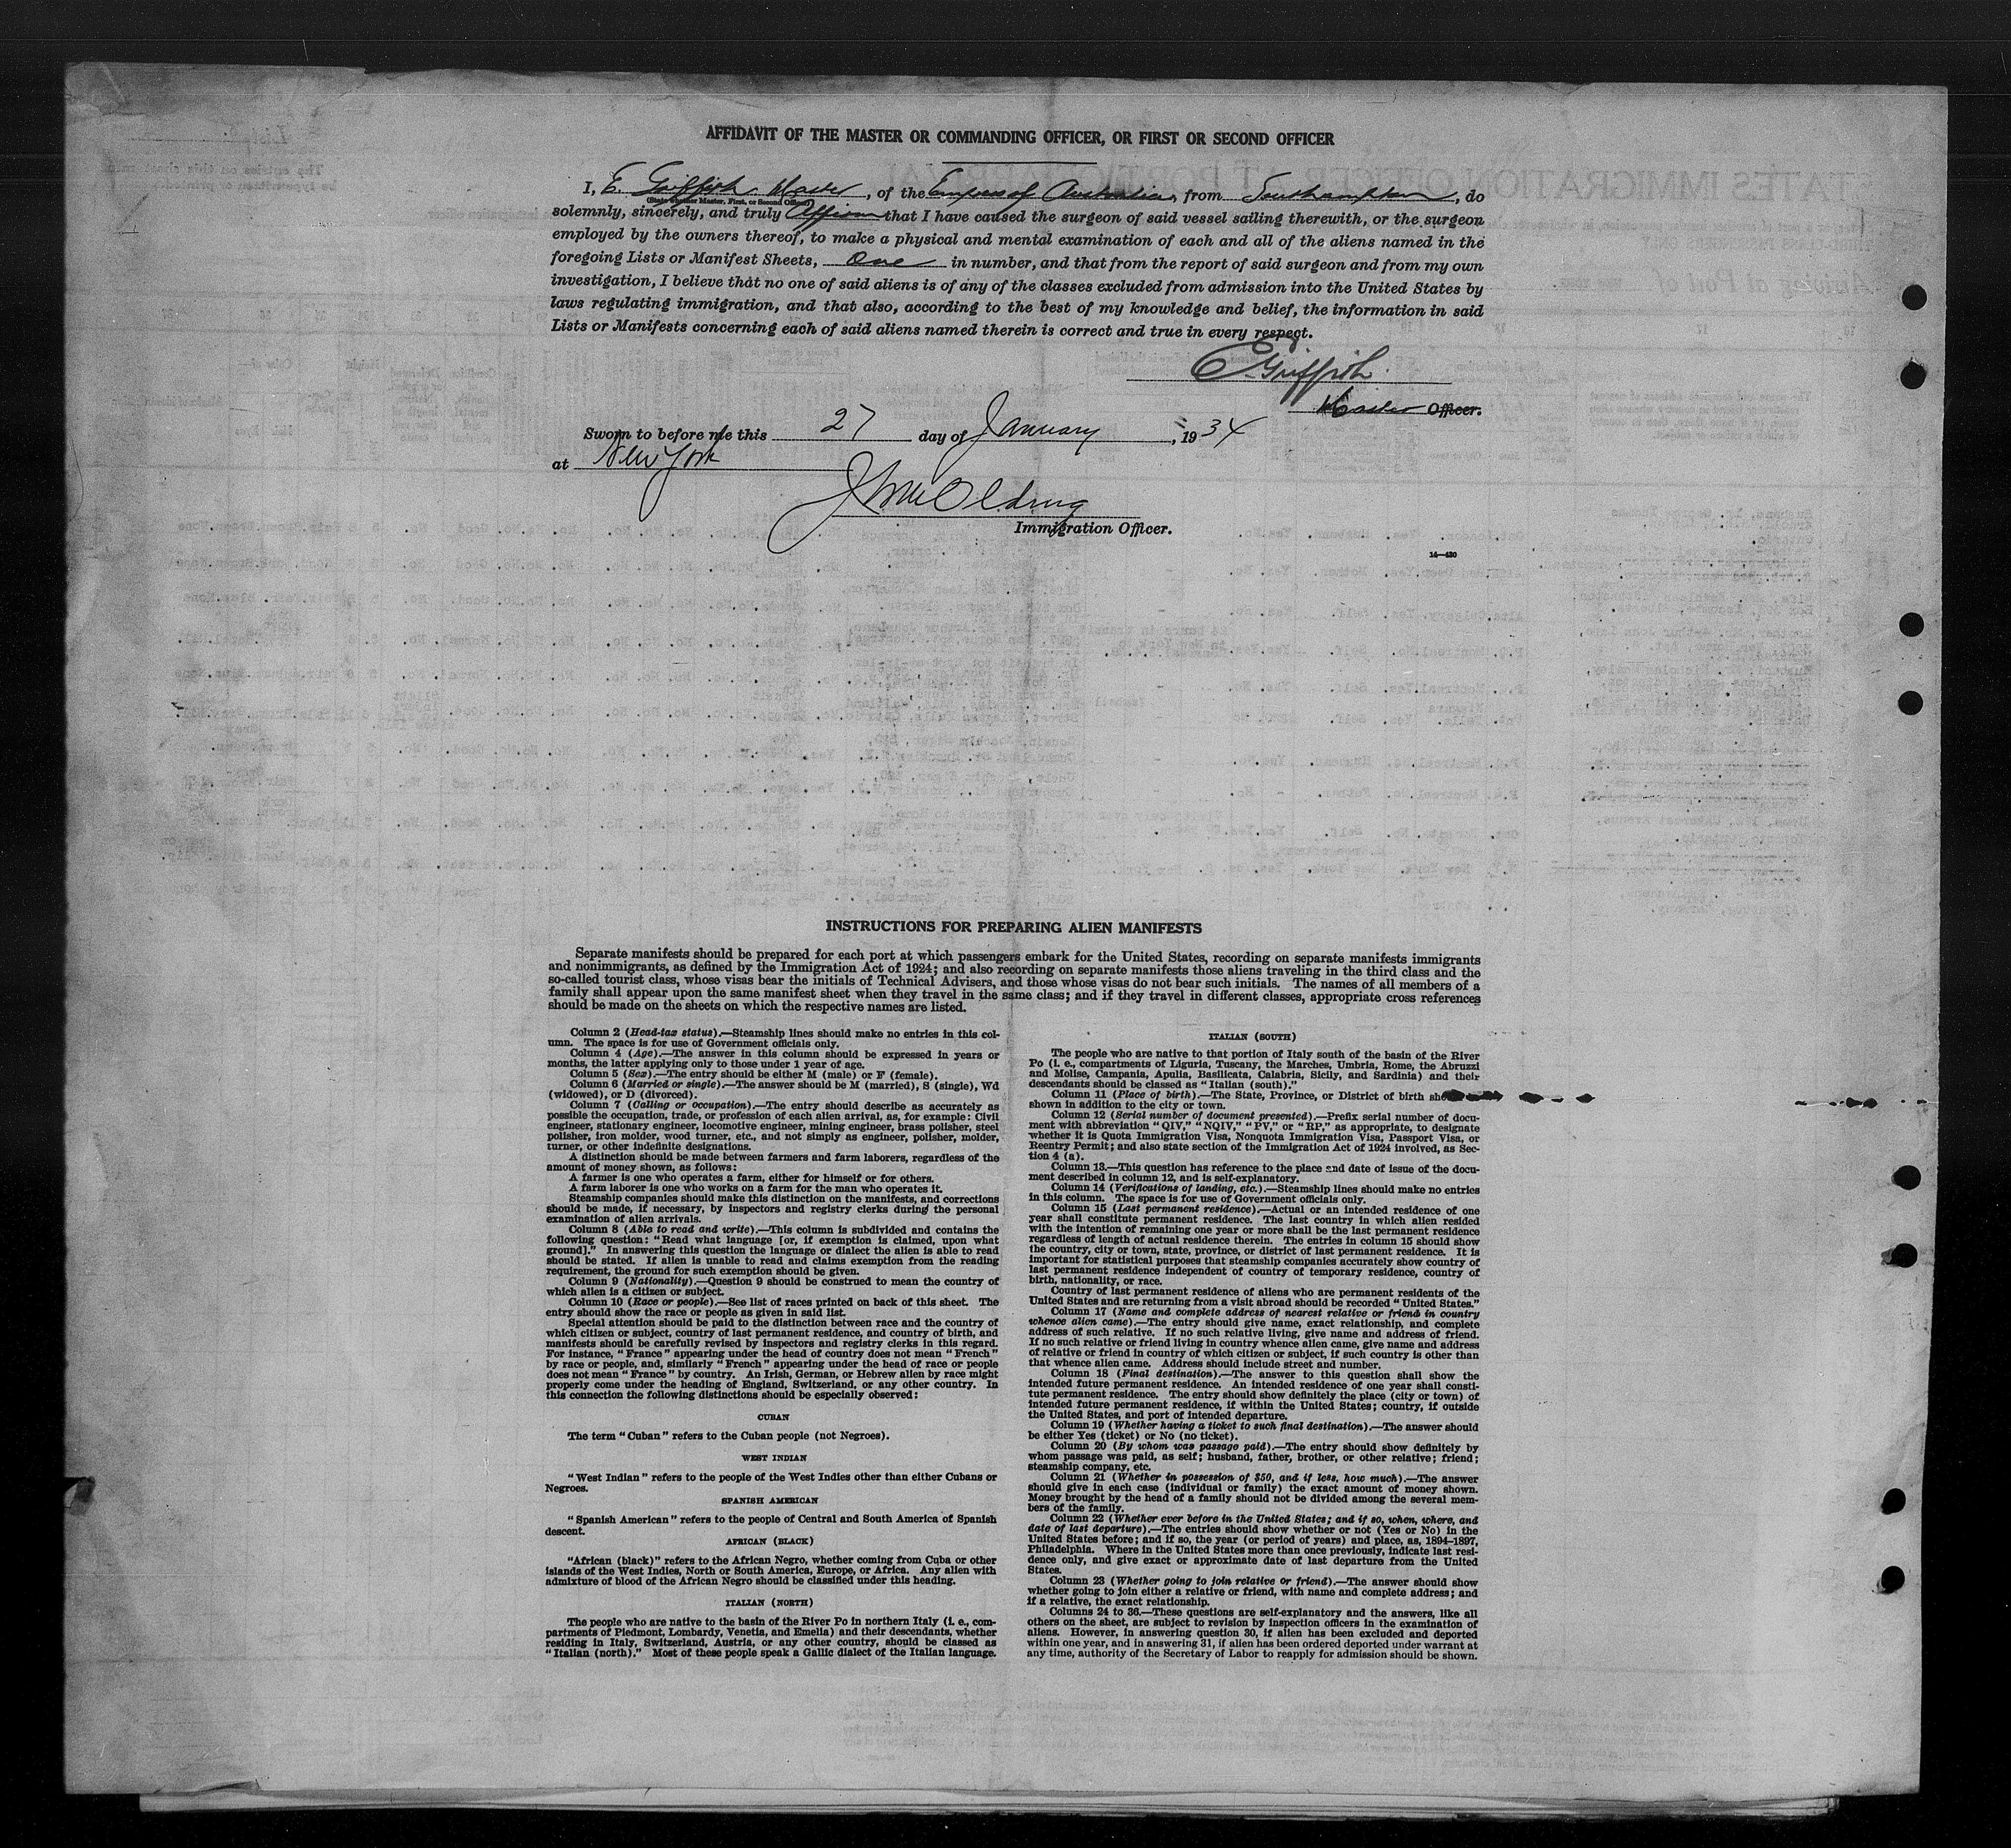 AFFIDAVIT OF THE MASTER OR COMMANDING OFFICER, OR FIRST OR SECOND OFFICER
I, E. Griffith Master, of the Empress of Australia, from Southampton, do
(State whether Master, First, or Second Officer)
solemnly, sincerely, and truly Affirm that I have caused the surgeon of said vessel sailing therewith, or the surgeon
employed by the owners thereof, to make a physical and mental examination of each and all of the aliens named in the
foregoing Lists or Manifest Sheets, One in number, and that from the report of said surgeon and from my own
investigation, I believe that no one of said aliens is of any of the classes excluded from admission into the United States by
laws regulating immigration, and that also, according to the best of my knowledge and belief, the information in said
Lists or Manifests concerning each of said aliens named therein is correct and true in every respect.
E Griffith.
Master Officer.
Sworn to before me this 27 day of January, 1934
at New York
Immigration Officer.
14—430
INSTRUCTIONS FOR PREPARING ALIEN MANIFESTS
Separate manifests should be prepared for each port at which passengers embark for the United States, recording on separate manifests immigrants
and nonimmigrants, as defined by the Immigration Act of 1924; and also recording on separate manifests those aliens traveling in the third class and the
so-called tourist class, whose visas bear the initials of Technical Advisers, and those whose visas do not bear such initials. The names of all members of a
family shall appear upon the same manifest sheet when they travel in the same class; and if they travel in different classes, appropriate cross references
should be made on the sheets on which the respective names are listed.
Column 2 (Head-tax status).—Steamship lines should make no entries in this col-
umn. The space is for use of Government officials only.
Column 4 (Age).—The answer in this column should be expressed in years or
months, the latter applying only to those under 1 year of age.
Column 5 (Sex).—The entry should be either M (male) or F (female).
Column 6 (Married or single).—The answer should be M (married), S (single), Wd
(widowed), or D (divorced).
Column 7 (Calling or occupation).—The entry should describe as accurately as
possible the occupation, trade, or profession of each alien arrival, as, for example: Civil
engineer, stationary engineer, locomotive engineer, mining engineer, brass polisher, steel
polisher, iron molder, wood turner, etc., and not simply as engineer, polisher, molder,
turner, or other indefinite designations.
A distinction should be made between farmers and farm laborers, regardless of the
amount of money shown, as follows:
A farmer is one who operates a farm, either for himself or for others.
A farm laborer is one who works on a farm for the man who operates it.
Steamship companies should make this distinction on the manifests, and corrections
should be made, if necessary, by inspectors and registry clerks during the personal
examination of alien arrivals.
Column 8 (Able to read and write).—This column is subdivided and contains the
following question: "Read what language [or, if exemption is claimed, upon what
ground]." In answering this question the language or dialect the alien is able to read
should be stated. If alien is unable to read and claims exemption from the reading
requirement, the ground for such exemption should be given.
Column 9 (Nationality).—Question 9 should be construed to mean the country of
which alien is a citizen or subject.
Column 10 (Race or people).—See list of races printed on back of this sheet. The
entry should show the race or people as given in said list.
Special attention should be paid to the distinction between race and the country of
which citizen or subject, country of last permanent residence, and country of birth, and
manifests should be carefully revised by inspectors and registry clerks in this regard.
For instance, "France" appearing under the head of country does not mean "French"
by race or people, and, similarly "French" appearing under the head of race or people
does not mean "France" by country. An Irish, German, or Hebrew alien by race might
properly come under the heading of England, Switzerland, or any other country. In
this connection the following distinctions should be especially observed:
CUBAN
The term "Cuban" refers to the Cuban people (not Negroes).
WEST INDIAN
"West Indian" refers to the people of the West Indies other than either Cubans or
Negroes.
SPANISH AMERICAN
"Spanish American" refers to the people of Central and South America of Spanish
descent.
AFRICAN (BLACK)
"African (black)" refers to the African Negro, whether coming from Cuba or other
islands of the West Indies, North or South America, Europe, or Africa. Any alien with
admixture of blood of the African Negro should be classified under this heading.
ITALIAN (NORTH)
The people who are native to the basin of the River Po in northern Italy (i. e., com-
partments of Piedmont, Lombardy, Venetia, and Emelia) and their descendants, whether
residing in Italy, Switzerland, Austria, or any other country, should be classed as
"Italian (north)." Most of these people speak a Gallic dialect of the Italian language.
ITALIAN (SOUTH)
The people who are native to that portion of Italy south of the basin of the River
Po (i. e., compartments of Liguria, Tuscany, the Marches, Umbria, Rome, the Abruzzi
and Molise, Campania, Apulia, Basilicata, Calabria, Sicily, and Sardinia) and their
descendants should be classed as "Italian (south)."
Column 11 (Place of birth).—The State, Province, or District of birth
shown in addition to the city or town.
Column 12 (Serial number of document presented).—Prefix serial number of docu-
ment with abbreviation "QIV," "NQIV," "PV," or "RP," as appropriate, to designate
whether it is Quota Immigration Visa, Nonquota Immigration Visa, Passport Visa, or
Reentry Permit; and also state section of the Immigration Act of 1924 involved, as Sec-
tion 4 (a).
Column 13.—This question has reference to the place and date of issue of the docu-
ment described in column 12, and is self-explanatory.
Column 14 (Verifications of landing, etc.).—Steamship lines should make no entries
in this column. The space is for use of Government officials only.
Column 15 (Last permanent residence).—Actual or an intended residence of one
year shall constitute permanent residence. The last country in which alien resided
with the intention of remaining one year or more shall be the last permanent residence
regardless of length of actual residence therein. The entries in column 15 should show
the country, city or town, state, province, or district of last permanent residence. It is
important for statistical purposes that steamship companies accurately show country of
last permanent residence independent of country of temporary residence, country of
birth, nationality, or race.
Country of last permanent residence of aliens who are permanent residents of the
United States and are returning from a visit abroad should be recorded "United States."
Column 17 (Name and complete address of nearest relative or friend in country
whence alien came).—The entry should give name, exact relationship, and complete
address of such relative. If no such relative living, give name and address of friend.
If no such relative or friend living in country whence alien came, give name and address
of relative or friend in country of which citizen or subject, if such country is other than
that whence alien came. Address should include street and number.
Column 18 (Final destination).—The answer to this question shall show the
intended future permanent residence. An intended residence of one year shall consti-
tute permanent residence. The entry should show definitely the place (city or town) of
intended future permanent residence, if within the United States; country, if outside
the United States, and port of intended departure.
Column 19 (Whether having a ticket to such final destination).—The answer should
be either Yes (ticket) or No (no ticket).
Column 20 (By whom was passage paid).—The entry should show definitely by
whom passage was paid, as self; husband, father, brother, or other relative; friend;
steamship company, etc.
Column 21 (Whether in possession of $50, and if less, how much).—The answer
should give in each case (individual or family) the exact amount of money shown.
Money brought by the head of a family should not be divided among the several mem-
bers of the family.
Column 22 (Whether ever before in the United States; and if so, when, where, and
date of last departure).—The entries should show whether or not (Yes or No) in the
United States before; and if so, the year (or period of years) and place, as, 1894–1897,
Philadelphia. Where in the United States more than once previously, indicate last resi-
dence only, and give exact or approximate date of last departure from the United
States.
Column 23 (Whether going to join relative or friend).—The answer should show
whether going to join either a relative or friend, with name and complete address; and
if a relative, the exact relationship.
Columns 24 to 36.—These questions are self-explanatory and the answers, like all
others on the sheet, are subject to revision by inspection officers in the examination of
aliens. However, in answering question 30, if alien has been excluded and deported
within one year, and in answering 31, if alien has been ordered deported under warrant at
any time, authority of the Secretary of Labor to reapply for admission should be shown.